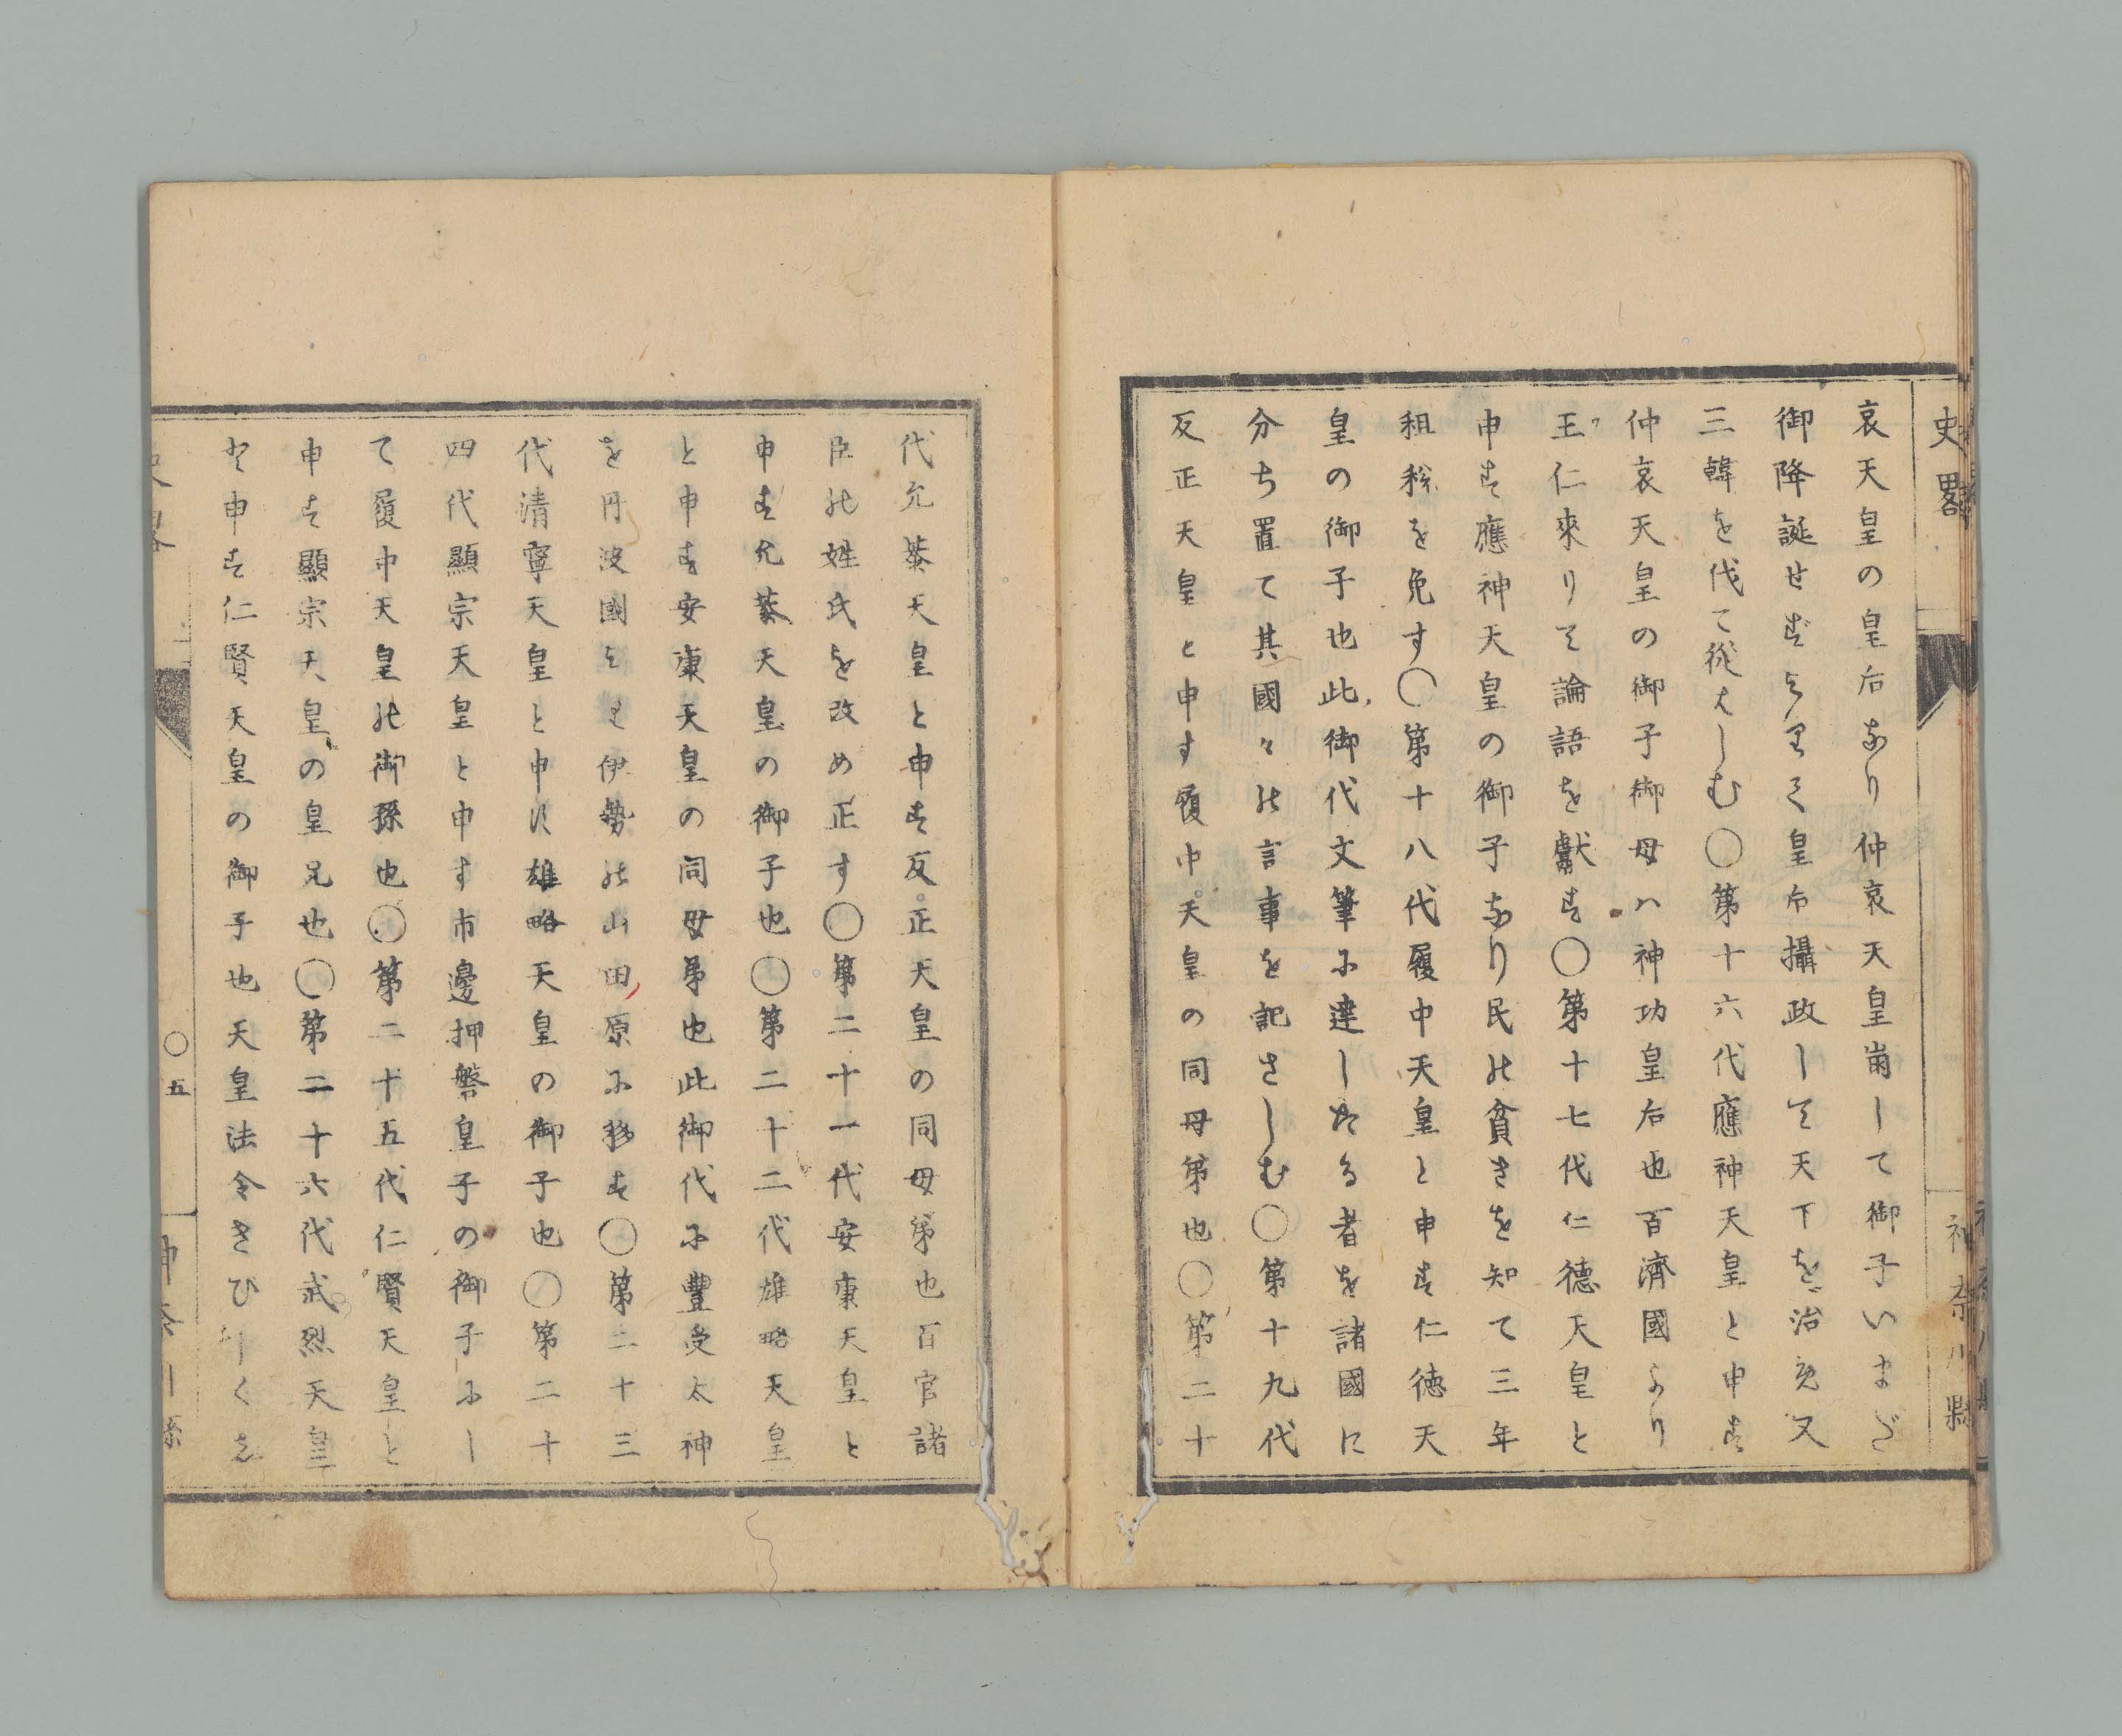 史畧
神奈川縣
哀天皇の皇后なり仲哀天皇崩して御子いまだ
御降誕せざるより皇后攝政して天下を治め又
三韓を伐て從えしむ〇第十六代應神天皇と申す
仲哀天皇の御子御母ハ神功皇后也百濟國より
王仁來りて論語を獻す〇第十七代仁德天皇と
申す應神天皇の御子なり民の貧きを知て三年
租稅を免す〇第十八代履中天皇と申す仁徳天
皇の御子也此御代文筆に達したる者を諸國に
分ち置て其國々の言事を記さしむ〇第十九代
反正天皇と申す履中天皇の同母弟也〇第二十
代允恭天皇と申す反正天皇の同母弟也百官諸
臣の姓氏を改め正す〇第二十一代安康天皇と
申す允恭天皇の御子也〇第二十二代雄略天皇
と申す安康天皇の同母弟也此御代に豐受太神
を丹波國より伊勢の山田原に移す〇第二十三
代清寧天皇と申す雄略天皇の御子也〇第二十
四代顯宗天皇と申す市邊押磐皇子の御子にし
て履中天皇の御孫也〇第二十五代仁賢天皇と
申す顯宗天皇の皇兄也〇第二十六代武烈天皇
と申す仁賢天皇の御子也天皇法令きびしくし
〇五